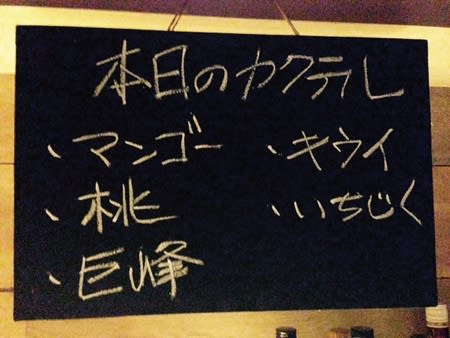 本日のカクテル
、マンゴー
、桃
、巨峰
、キウイ
、いちじく